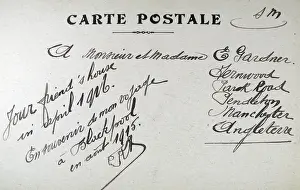 CARTE POSTALE
A Monsieur et Madame E Gardner
Fernwood
Road
Pendleton
Manchester
Angleterre
Your friend's house
in April 1916.
En souvenir de mon voyage
à Blackpool
en août 1915.